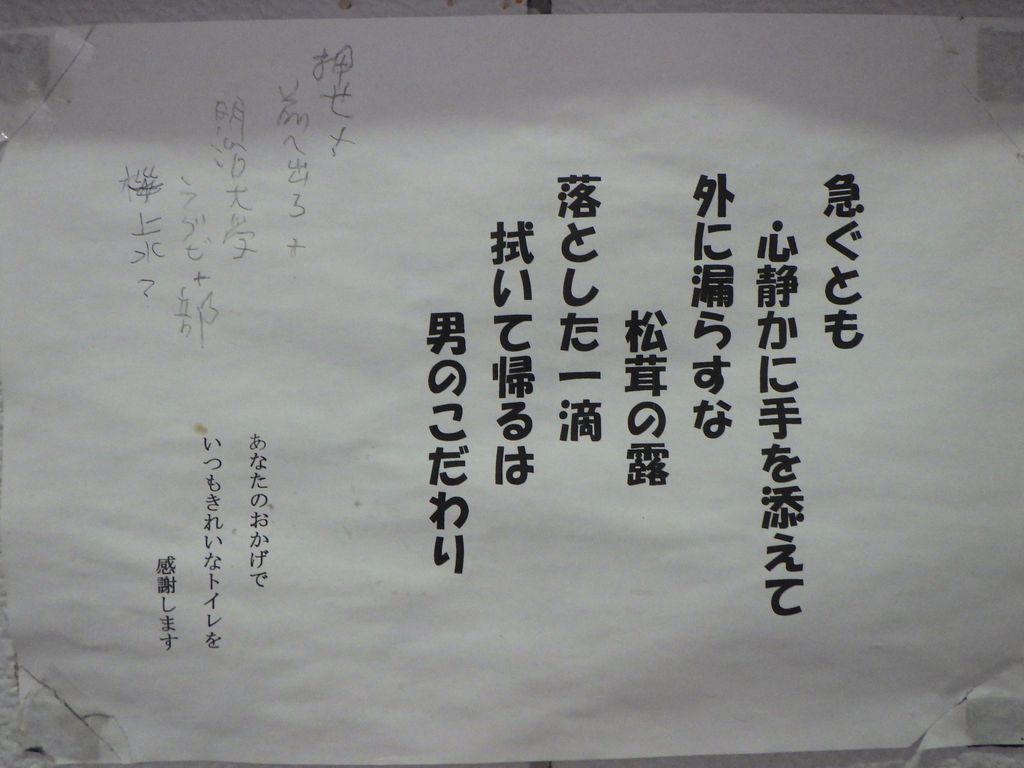 急ぐとも
心静かに手を添えて
外に漏らすな
松茸の露
落とした一滴
拭いて帰るは
男のこだわり
押せ
前へ出ろ
明治大学
ラグビー部
上水?
あなたのおかげで
いつもきれいなトイレを
感謝します